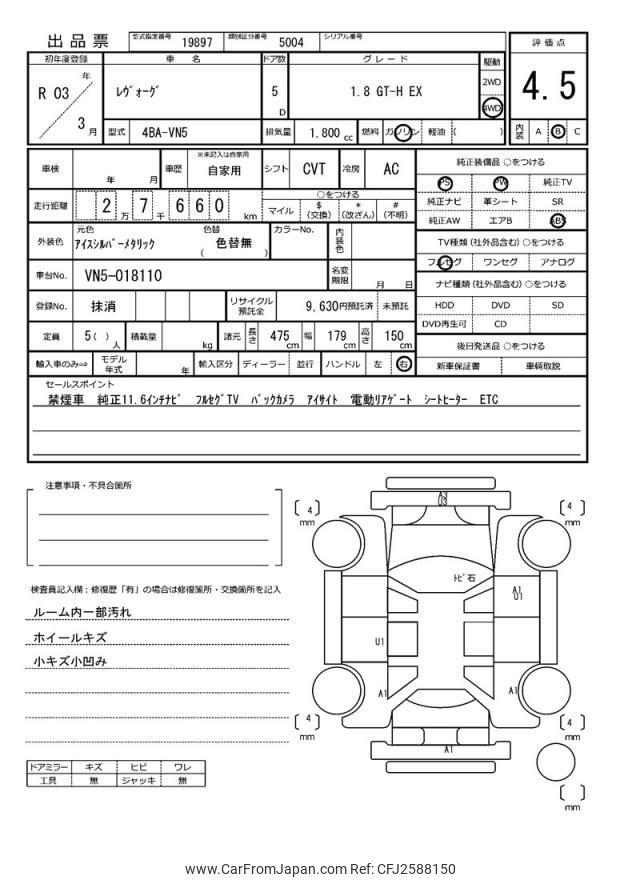 出品票 型式指定番号 19897 類別区分番号 5004 シリアル番号
初年度登録 車名 ドア数 グレード 駆動 評価点
R 03 年 3 月 ﾚｳﾞｫｰｸﾞ 5 D 1.8 GT-H EX 2WD 4WD 4.5
型式 4BA-VN5 排気量 1,800 cc 燃料 ガソリン 軽油 ( ) 内装 A B C
車検 年 月 車歴 ※未記入は自家用 自家用 シフト CVT 冷房 AC
純正装備品 ○をつける
PS PW 純正TV
純正ナビ 革シート SR
純正AW エアB ABS
走行距離 2 万 7 千 6 6 0 km
○をつける
マイル $ (交換) * (改ざん) # (不明)
外装色 元色 ｱｲｽｼﾙﾊﾞｰﾒﾀﾘｯｸ 色替 ( 色替無 ) カラーNo. 内装色
TV種類 (社外品含む) ○をつける
フルセグ ワンセグ アナログ
車台No. VN5-018110 名変期限 月 日
ナビ種類 (社外品含む) ○をつける
HDD DVD SD
DVD再生可 CD
登録No. 抹消 リサイクル預託金 9,630円預託済 未預託
定員 5 ( ) 人 積載量 kg 諸元 長さ 475 cm 幅 179 cm 高さ 150 cm
後日発送品 ○をつける
新車保証書 車輌取説
輸入車のみ⇒ モデル年式 年 輸入区分 ディーラー 並行 ハンドル 左 右
セールスポイント
禁煙車 純正11.6ｲﾝﾁﾅﾋﾞ ﾌﾙｾｸﾞTV ﾊﾞｯｸｶﾒﾗ ｱｲｻｲﾄ 電動ﾘｱｹﾞｰﾄ ｼｰﾄﾋｰﾀｰ ETC
注意事項・不具合箇所
検査員記入欄：修復歴「有」の場合は修復箇所・交換箇所を記入
ルーム内一部汚れ
ホイールキズ
小キズ小凹み
ドアミラー キズ ヒビ ワレ
工具 無 ジャッキ 無
U3
[ 4 ] mm
[ 4 ] mm
ﾄﾋﾞ石
A1
U1
U1
A1
A1
[ 4 ] mm
[ 4 ] mm
A1
[ ] mm
www.CarFromJapan.com Ref: CFJ2588150